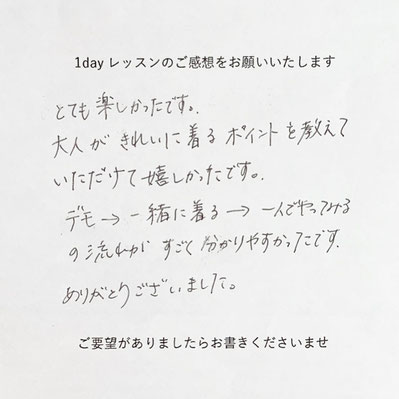 1day レッスンのご感想をお願いいたします
とても楽しかったです。
大人がきれいに着るポイントを教えて
いただけて嬉しかったです。
デモ→一緒に着る→一人でやってみる
の流れがすごく分かりやすかったです。
ありがとうございました。
ご要望がありましたらお書きくださいませ